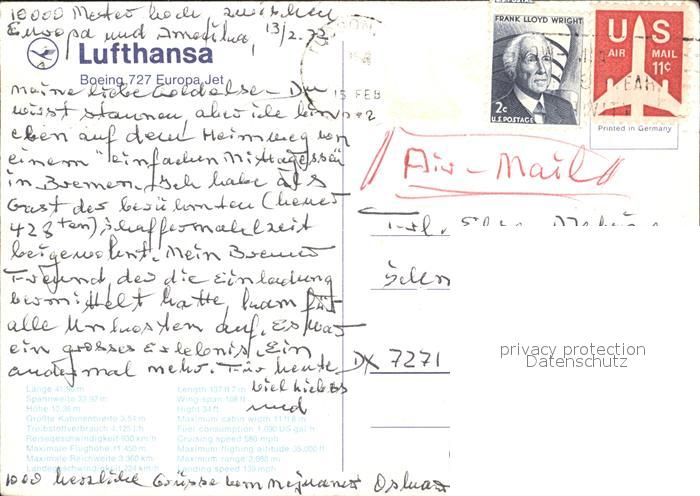 10000 Meter hoch zwischen
Europa und Amerika, 13/2.72
Lufthansa
Boeing 727 Europa Jet
Meine liebe Goldelse - Du
wirst staunen, aber ich bin
eben auf dem Heimweg von
einem "einfachen Mittagessen
in Bremen. Ich habe als
Gast der berühmten (heuer
428 ten) Schaffermahlzeit
beigewohnt. Mein Bremer
Freund, der die Einladung
vermittelt hatte, kam für
alle Unkosten auf. Es war
ein grosses Erlebnis. Ein
andermal mehr. Für heute
viel liebes
und
1000 herzliche Grüsse vom Oskar
Länge 41,55 m
Spannweite 32,92 m
Höhe 10,36 m
Größte Kabinenbreite 3,54 m
Treibstoffverbrauch 4.125 l/h
Reisegeschwindigkeit 930 km/h
Maximale Flughöhe 11.450 m
Maximale Reichweite 3.360 km
Landegeschwindigkeit 224 km/h
Length 137 ft 7 in
Wing-span 108 ft
Hight 34 ft
Maximum cabin width 11 ft 8 in
Fuel consumption 1,090 US gal/h
Cruising speed 580 mph
Maximum flighting altitude 35,000 ft
Maximum range 2,088 mi
Landing speed 139 mph
15 FEB
FRANK LLOYD WRIGHT
2c
U.S. POSTAGE
US
AIR MAIL
11c
Printed in Germany
Air-Mail
Frl.
DX 7271
privacy protection
Datenschutz